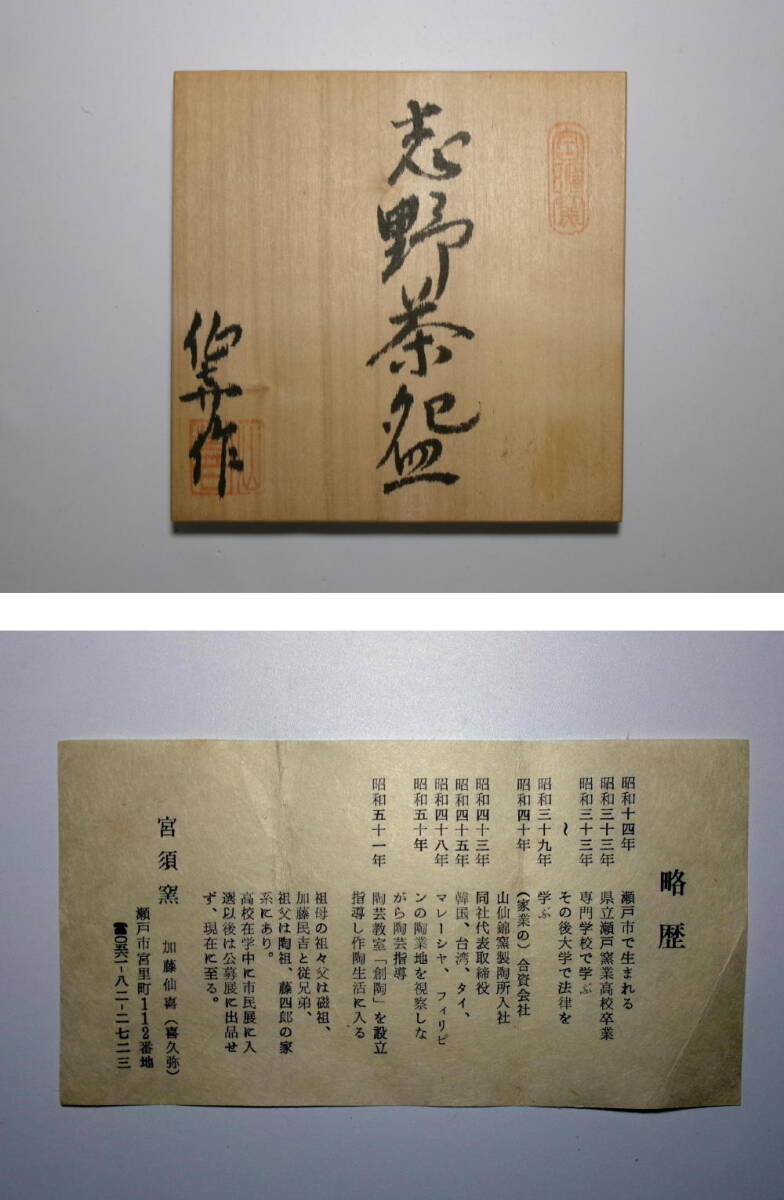 志野茶盌
仙喜作
略歴
昭和十四年 瀬戸市で生まれる
昭和三十三年 県立瀬戸窯業高校卒業
昭和三十三年 専門学校で学ぶ
〜 その後大学で法律を
昭和三十九年 学ぶ
昭和四十年 (家業の)合資会社
山仙錦窯製陶所入社
昭和四十三年 同社代表取締役
昭和四十五年 韓国、台湾、タイ、
昭和四十八年 マレーシヤ、フィリピ
昭和五十年 ンの陶業地を視察しな
がら陶芸指導
昭和五十一年 陶芸教室「創陶」を設立
指導し作陶生活に入る
祖母の祖々父は磁祖、
加藤民吉と従兄弟、
祖父は陶祖、藤四郎の家
系にあり。
高校在学中に市民展に入
選以後は公募展に出品せ
ず、現在に至る。
宮須窯 加藤仙喜(喜久弥)
瀬戸市宮里町112番地
(☎〇五六一-八二-二七二三